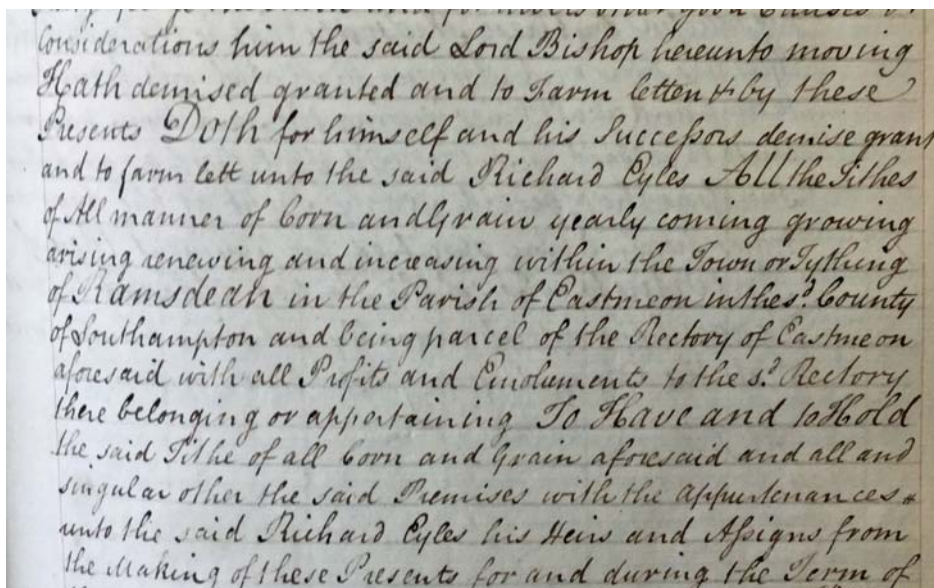 and for divers other good Causes &
Considerations him the said Lord Bishop hereunto moving
Hath demised granted and to Farm letten & by these
Presents Doth for himself and his Successors demise grant
and to farm lett unto the said Richard Eyles All the Tithes
of All manner of Corn and Grain yearly coming growing
arising renewing and increasing within the Town or Tything
of Ramsdean in the Parish of Eastmeon in the sd. County
of Southampton and being parcel of the Rectory of Eastmeon
aforesaid with all Profits and Emoluments to the sd. Rectory
there belonging or appertaining To Have and to Hold
the said Tithe of all Corn and Grain aforesaid and all and
singular other the said Premises with the appurtenances
unto the said Richard Eyles his Heirs and Assigns from
the Making of these Presents for and during the Term of